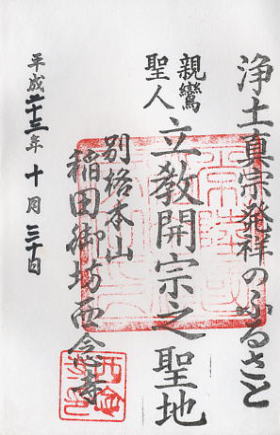 浄土真宗発祥のふるさと
親鸞
聖人
立教開宗之聖地
別格本山
稲田御坊西念寺
平成二十三年十月三十日